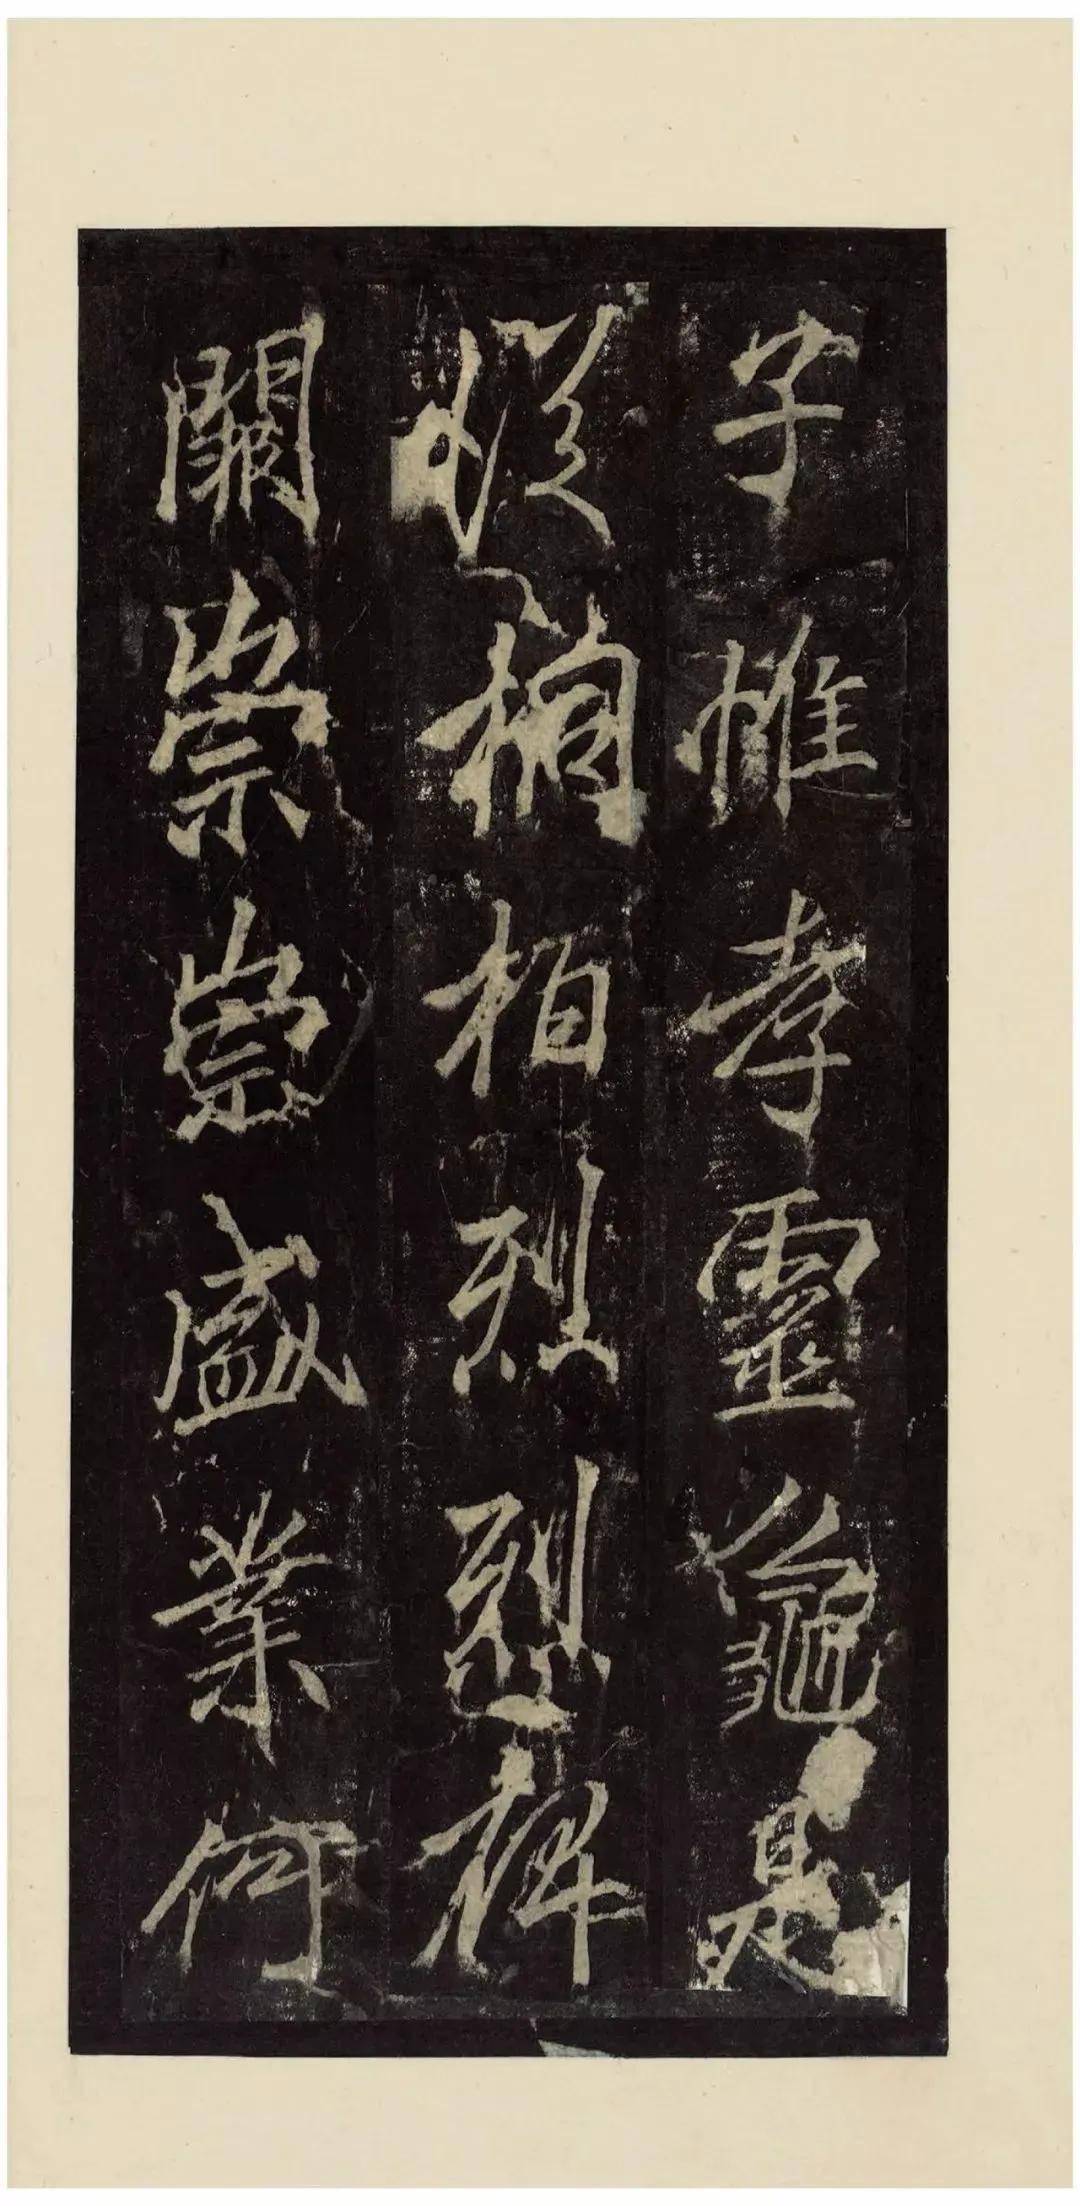 子惟孝靈龜是
從楠柏烈烈碑
闕崇崇盛業何